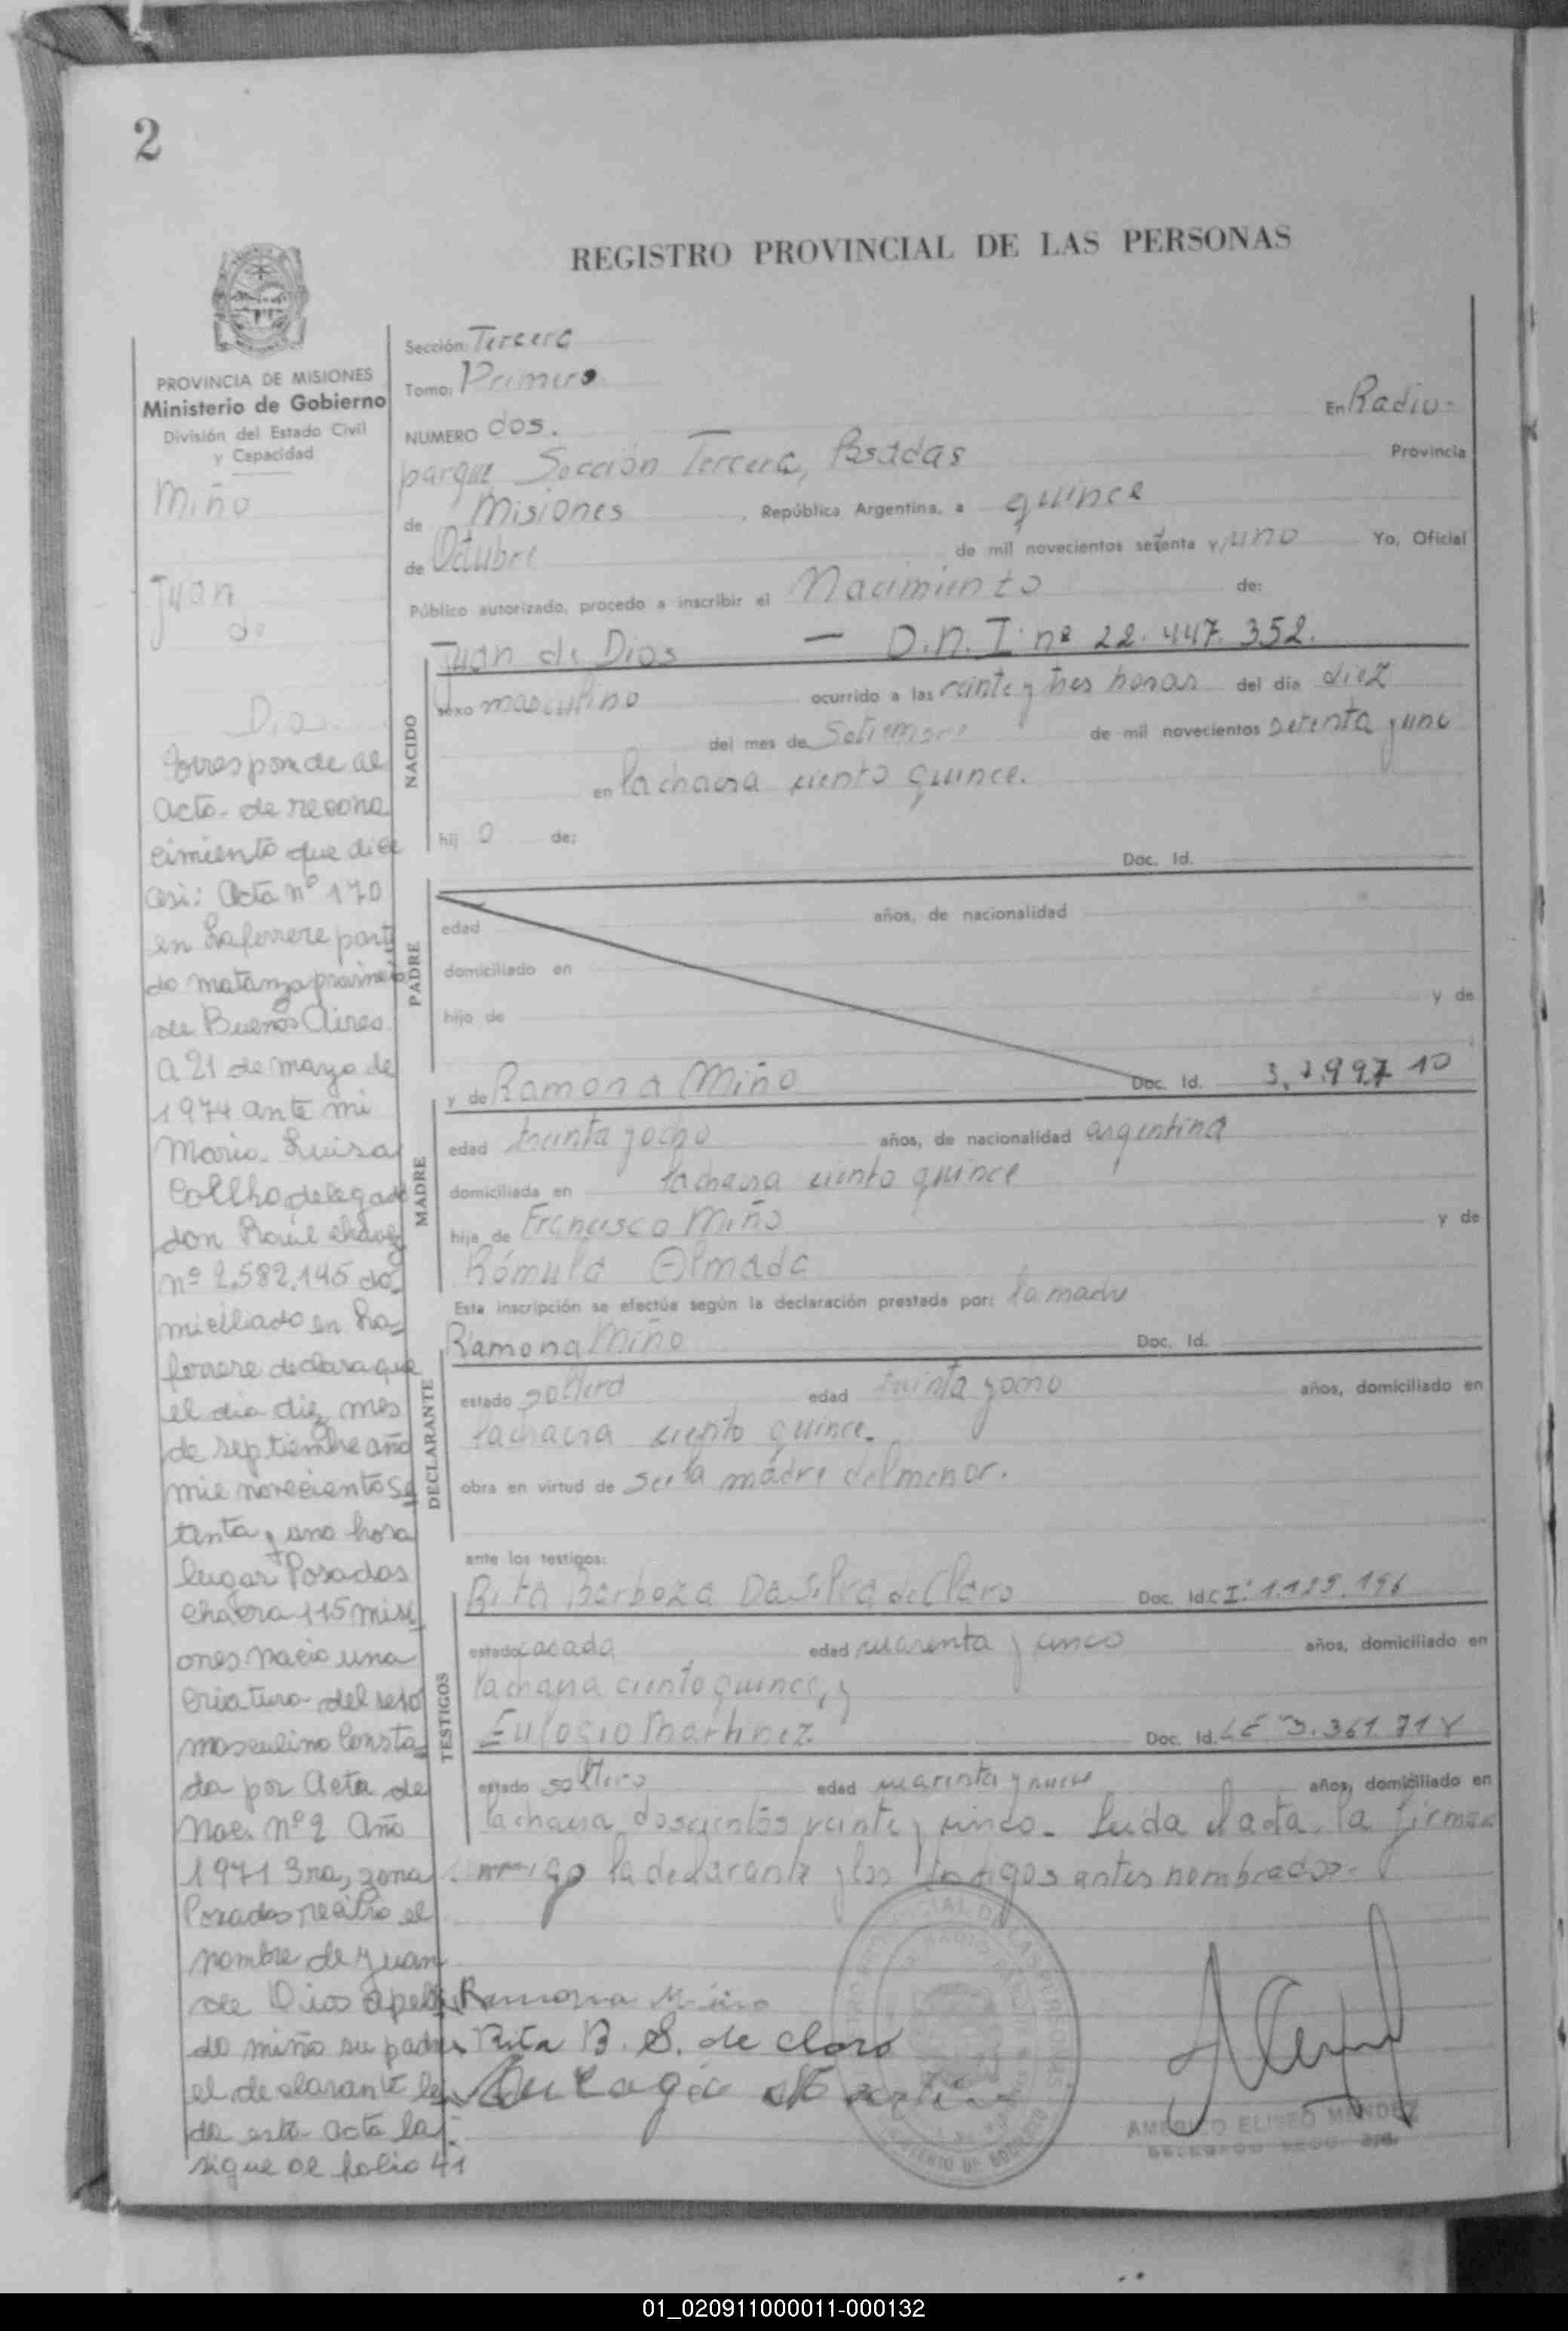 2
REGISTRO PROVINCIAL DE LAS PERSONAS
PROVINCIA DE MISIONES
Ministerio de Gobierno
División del Estado Civil
y Capacidad
Miño
Juan
de
Dios
Corresponde al
acta de recono
cimiento que dice
asi: Acta nº 170
en Laferrere parti
do matanza provincia
de Buenos Aires
a 21 de mayo de
1974 ante mi
Maria Luisa
Collho delegado
don Raúl Chávez
nº 2.582.145 do
miciliado en La
ferrere declara que
el dia diez mes
de septiembre año
mil novecientos se
tenta y uno hora
lugar Posadas
chacra 115 misi
ones nacio una
criatura del sexo
masculino Consta
da por Acta de
Nac. nº 2 Año
1971 3ra, zona
Posadas recibio el
nombre de Juan
de Dios apelli
do miño su padre
el declarante lei
da esta acta la
sigue al folio 41
Sección: Tercera
Tomo: Primero
NUMERO dos.
En Radio-
parque Sección Tercera, Posadas Provincia
de Misiones, República Argentina, a quince
de Octubre de mil novecientos setenta y uno Yo, Oficial
Público autorizado, procedo a inscribir el Nacimiento de:
Juan de Dios — D.N.I. nº 22.447.352.
NACIDO
sexo masculino ocurrido a las veinte y tres horas del día diez
del mes de Setiembre de mil novecientos setenta y uno
en la chacra ciento quince.
hij o de:
Doc. Id.
PADRE
edad años, de nacionalidad
domiciliado en
hijo de y de
MADRE
y de Ramona Miño Doc. Id.
edad treinta y ocho años, de nacionalidad argentina
domiciliada en la chacra ciento quince
hija de Francisco Miño y de
Rómula Olmada
Esta inscripción se efectúa según la declaración prestada por: la madre
DECLARANTE
Ramona Miño Doc. Id.
estado soltera edad treinta y ocho años, domiciliado en
la chacra ciento quince.
obra en virtud de ser la madre del menor.
ante los testigos:
TESTIGOS
Rita Barboza Da Silva de Claro Doc. Id. C I: 1.129.196
estado casada edad cuarenta y cinco años, domiciliado en
la chacra ciento quince, y
Eulogio Martinez Doc. Id. LE 3.361.71
estado soltero edad cuarenta y nueve años, domiciliado en
la chacra doscientos veinte y cinco. Leida el acta, la firman
conmigo la declarante y los testigos antes nombrados.-
Ramona Miño
Rita B. S. de Claro
Eulogio Martinez
AMERICO ELISEO MENDEZ
01_020911000011-000132